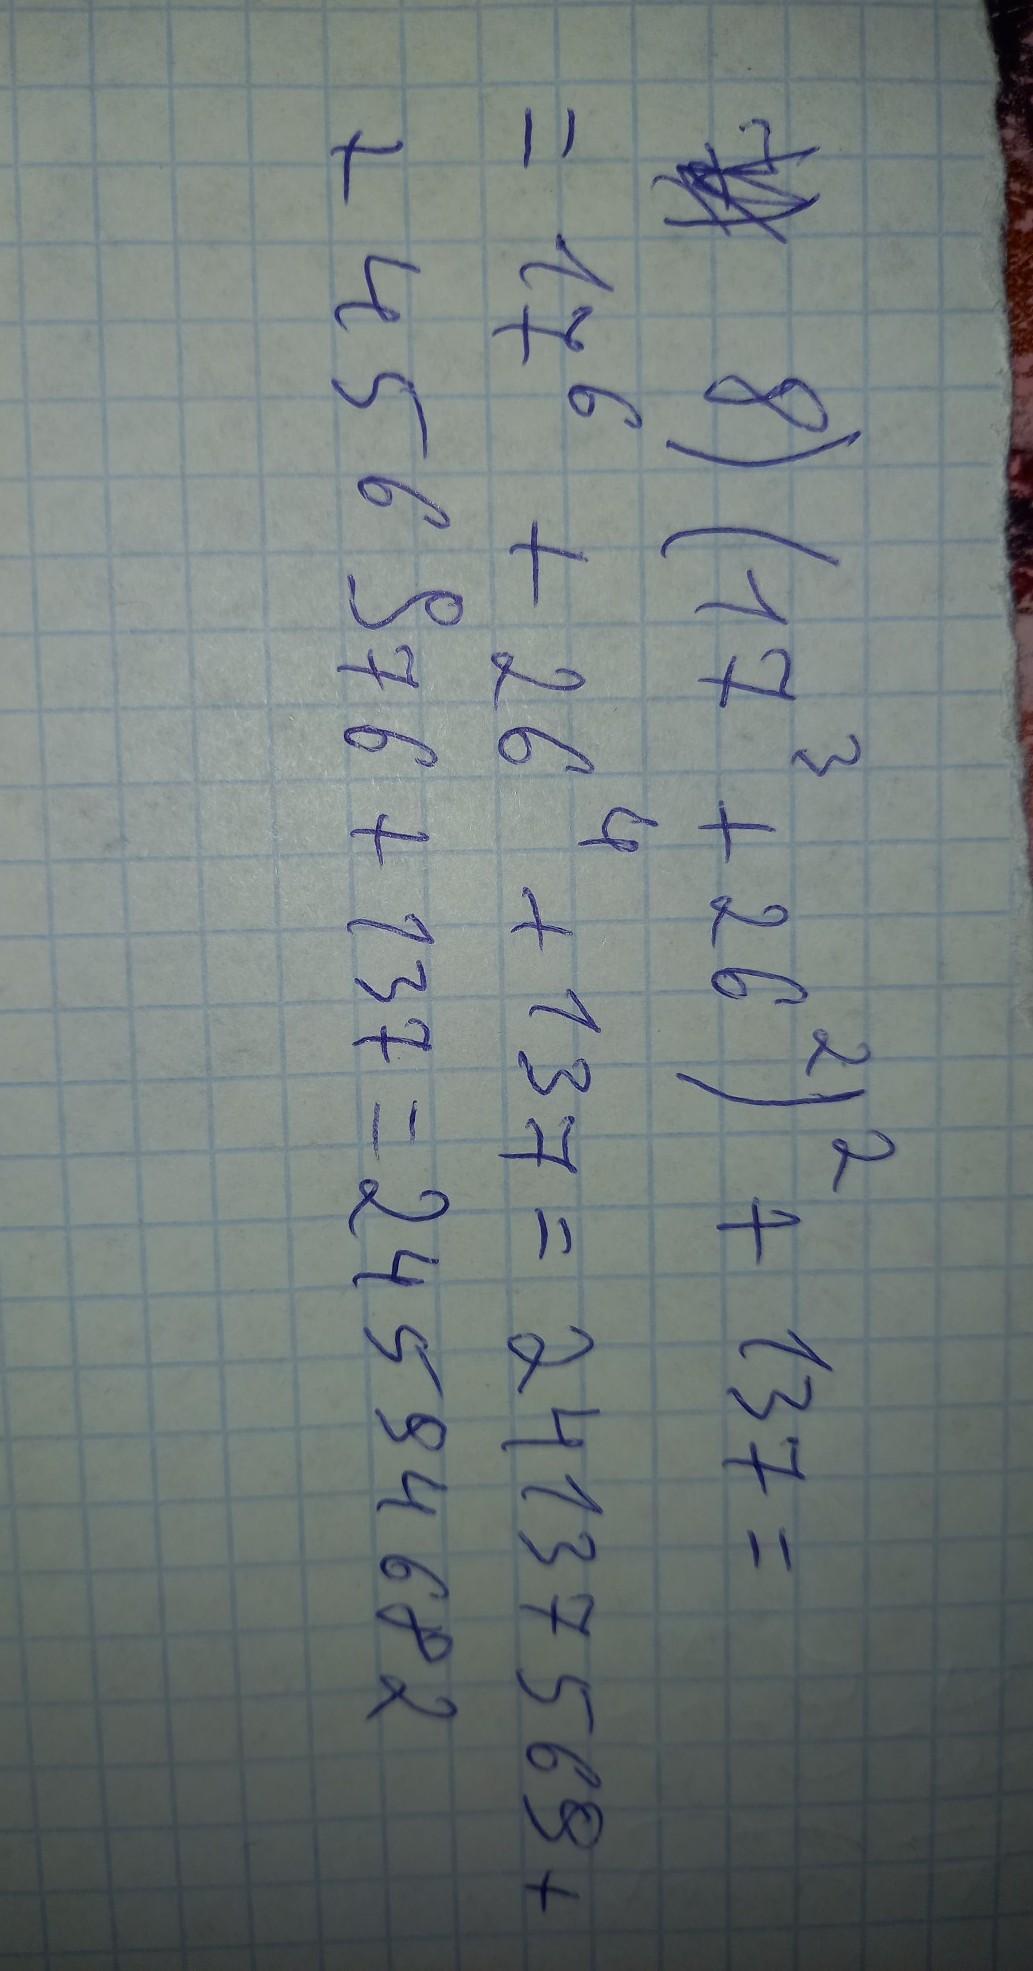 8) (17³ + 26²)² + 137 =
= 17⁶ + 26⁴ + 137 = 24137569 +
+ 456976 + 137 = 24594682